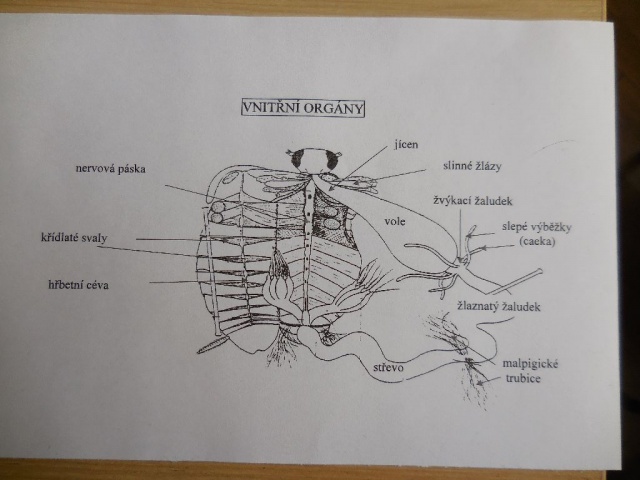 VNITŘNÍ ORGÁNY
jícen
nervová páska
slinné žlázy
žvýkací žaludek
vole
slepé výběžky
(caeka)
křídlaté svaly
hřbetní céva
žlaznatý žaludek
střevo
malpigické
trubice